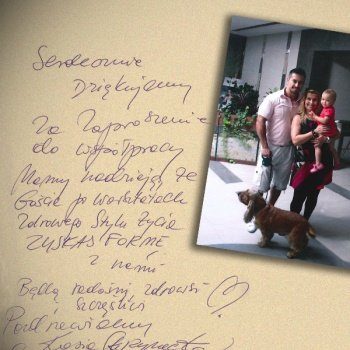 Serdecznie
Dziękujemy
za zaproszenie
do współpracy
Mamy nadzieję że
Goście po warsztatach
Zdrowego Stylu Życia
ZYSKAĆ FORMĘ
z nami
Będą radośni zdrowsi
szczęśliwi
Pozdrawiamy
Kasia